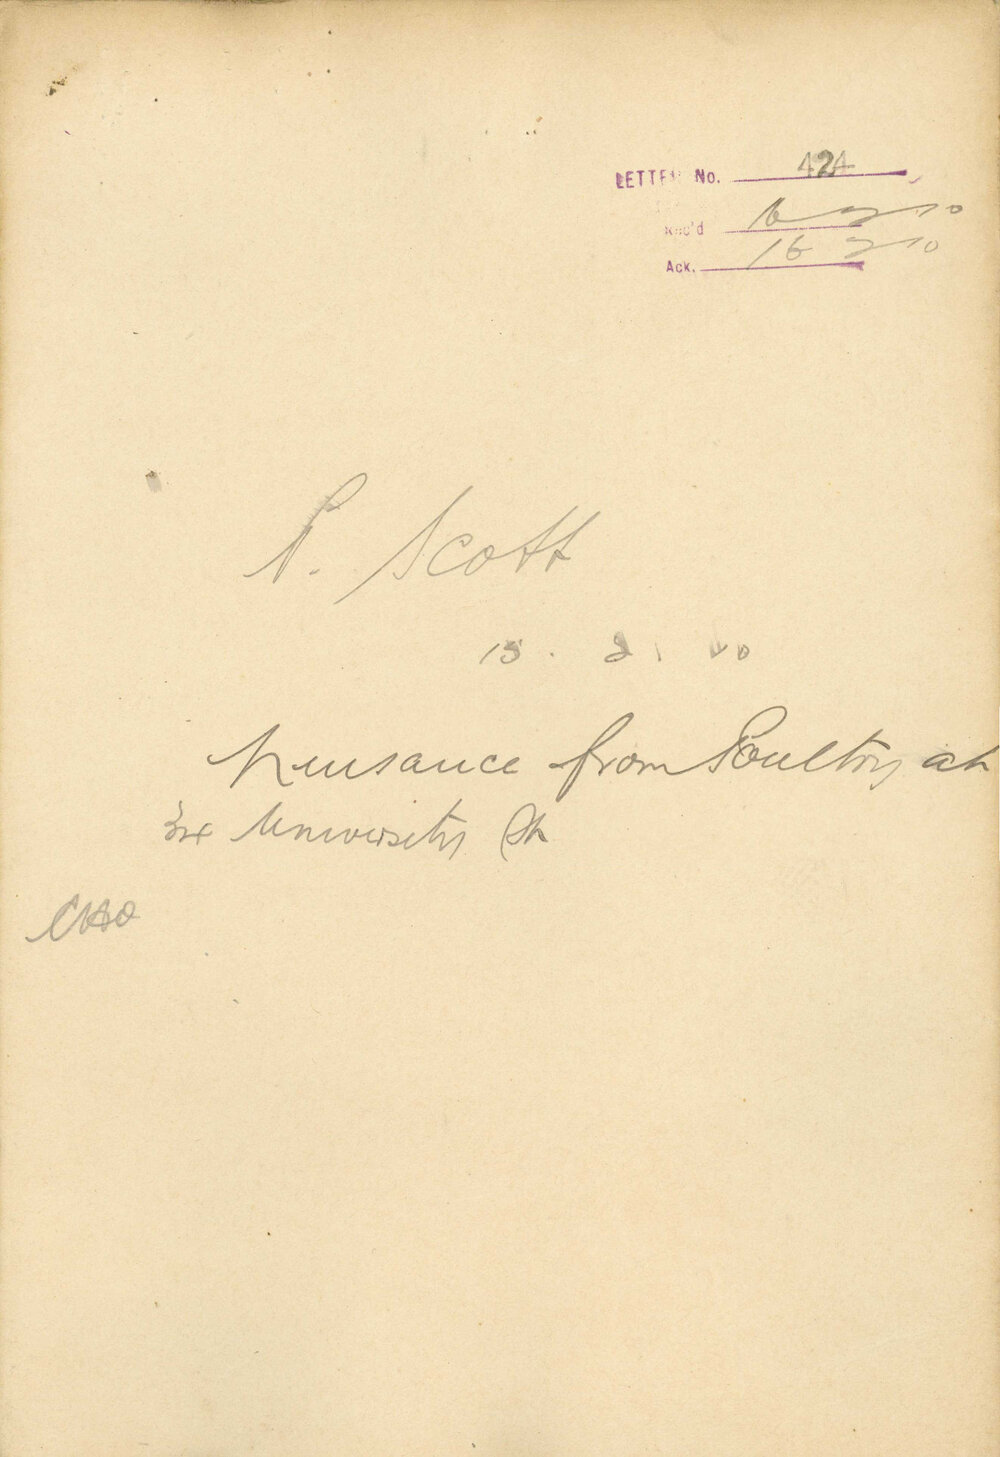 LETTER No. 424
Rec'd 16 2 10
Ack. 16 2 10
P. Scott
15. 2. 10
Nuisance from Poultry at
University St
CHO